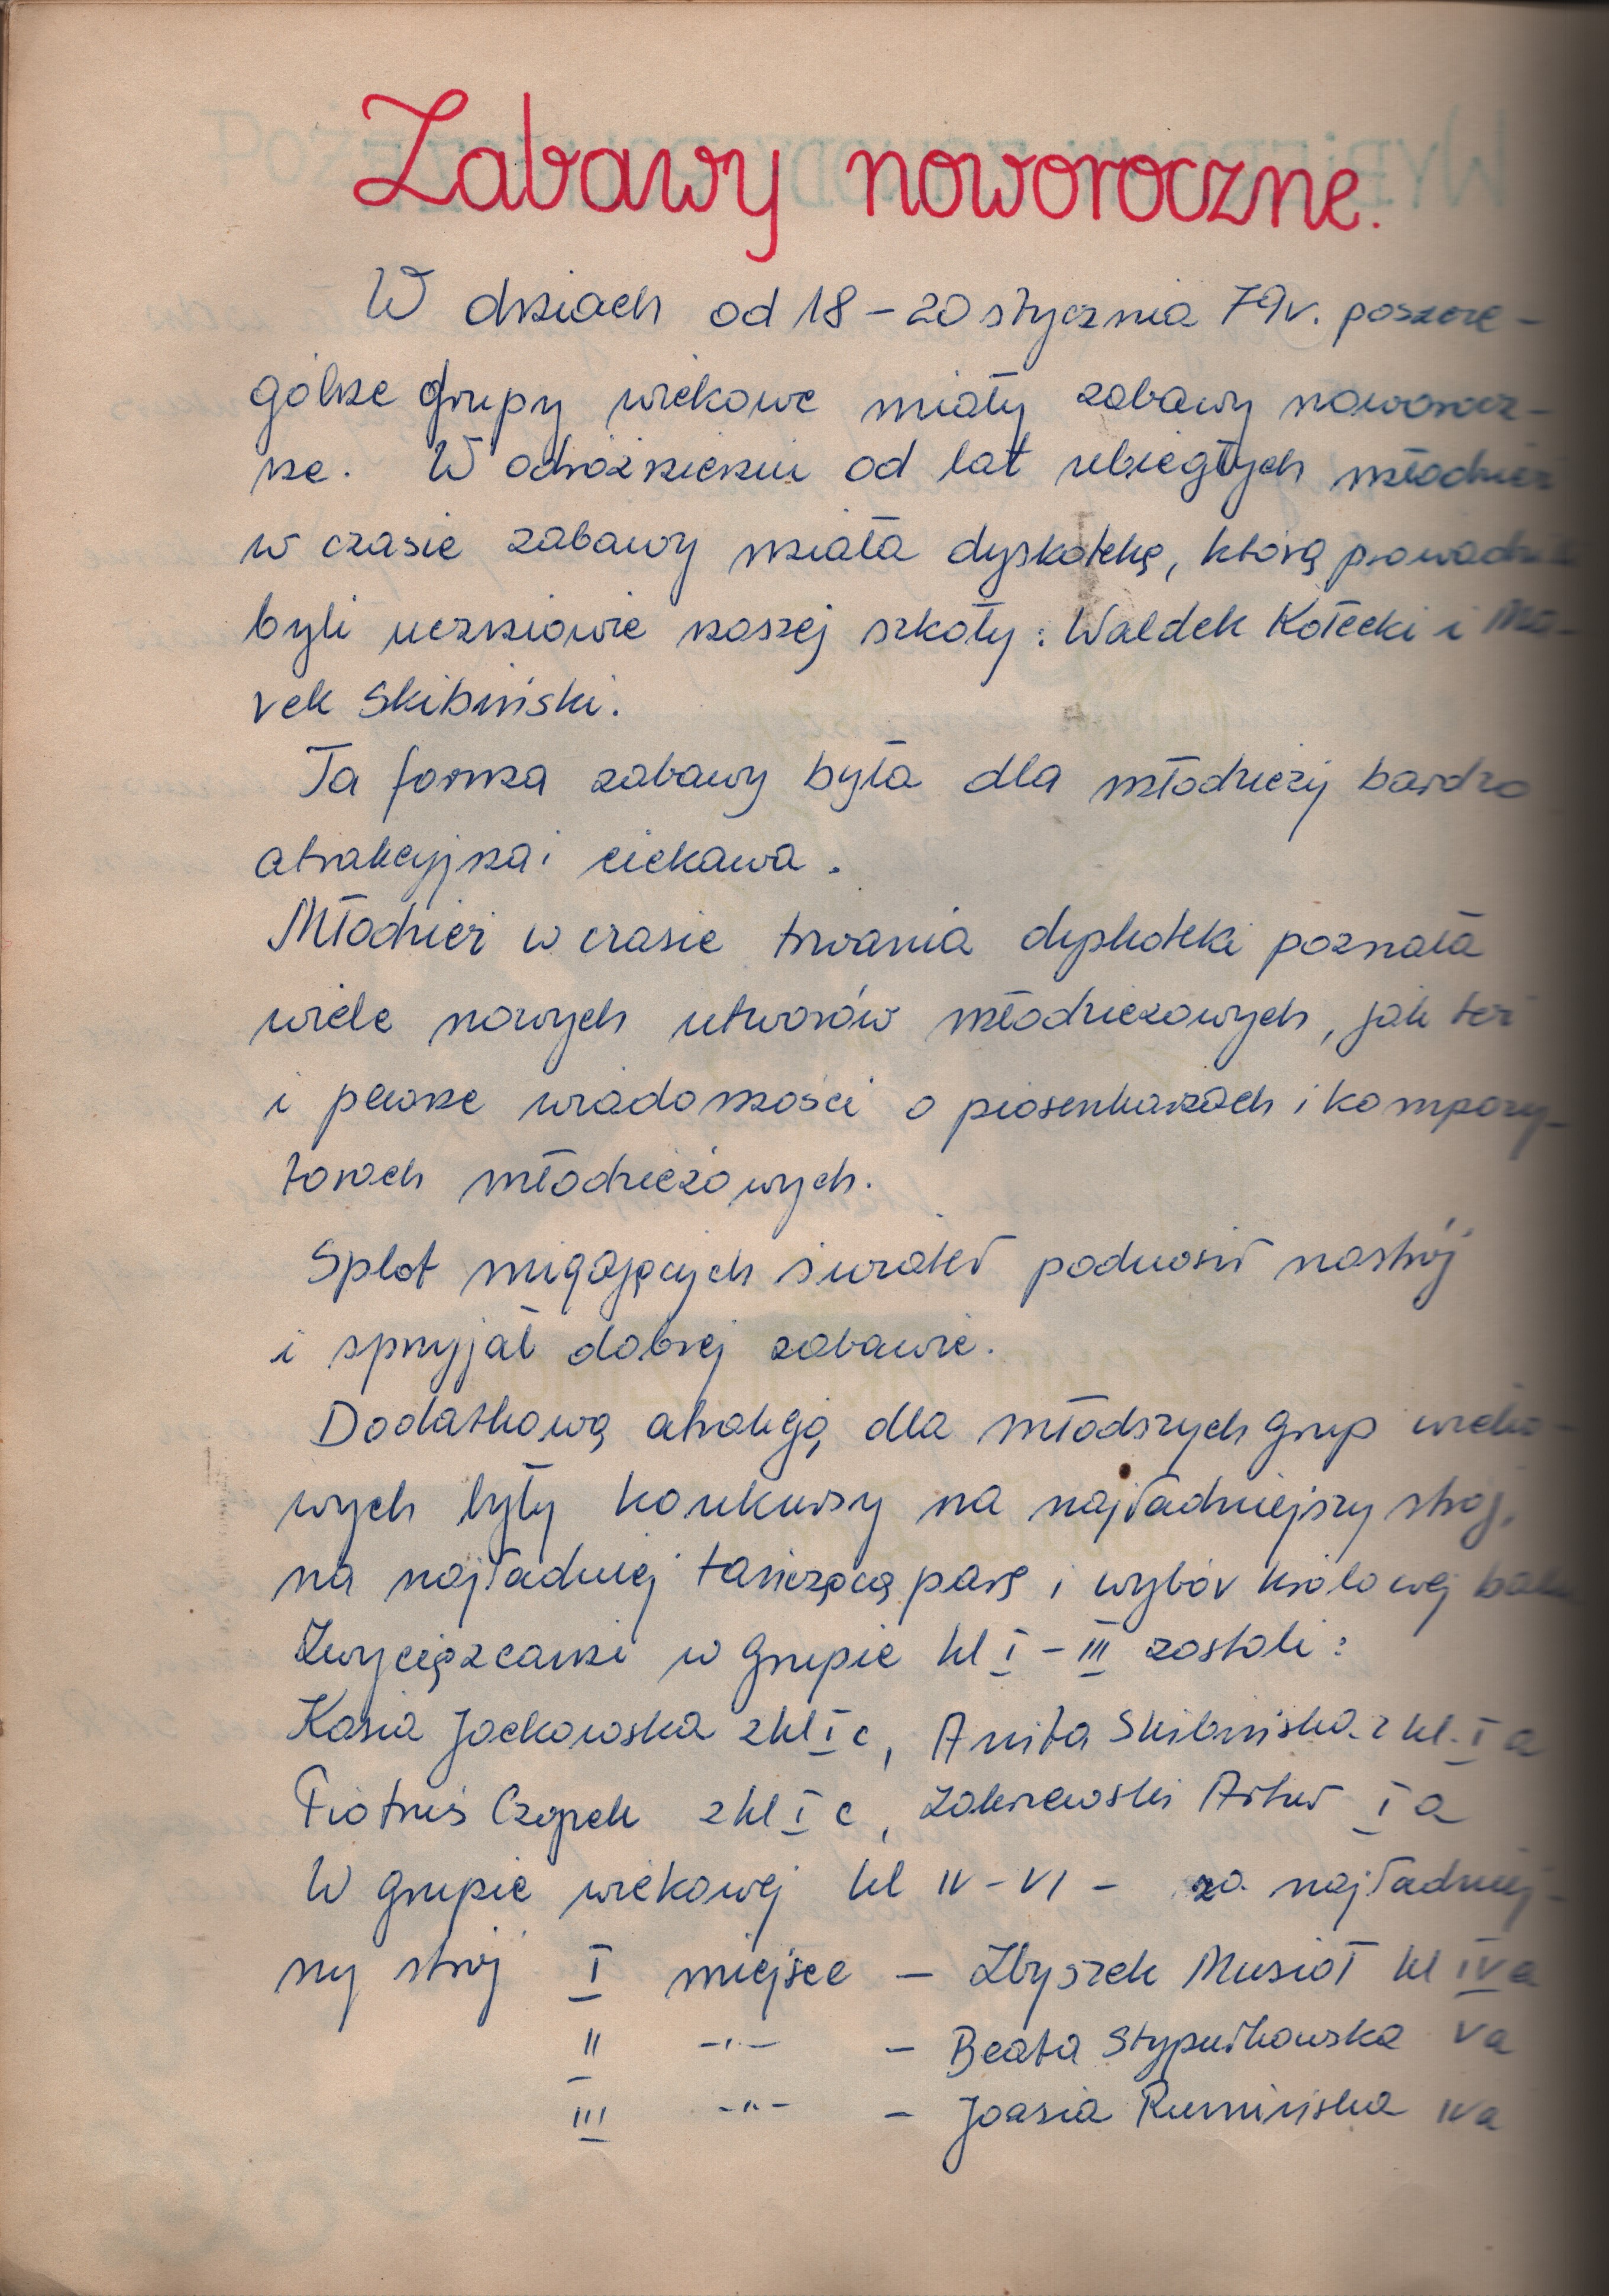 Zabawy noworoczne.
W dniach od 18 – 20 stycznia 79r. poszcze-
gólne grupy wiekowe miały zabawy noworocz-
ne. W odróżnieniu od lat ubiegłych młodzież
w czasie zabawy miała dyskotekę, którą
byli uczniowie naszej szkoły: Waldek Kołecki i Ma-
rek Skibiński.
Ta forma zabawy była dla młodzieży bardzo
atrakcyjna i ciekawa.
Młodzież w czasie trwania dyskoteki poznała
wiele nowych utworów młodzieżowych, jak też
i pewne wiadomości o piosenkarzach i kompozy-
torach młodzieżowych.
Splot migających świateł podnosił nastrój
i sprzyjał dobrej zabawie.
Dodatkową atrakcją dla młodszych grup wieko-
wych były konkursy na najładniejszy strój,
na najładniej tańczącą parę i wybór królowej balu
Zwycięzcami w grupie kl I – III zostali:
Kasia Jackowska z kl I c, Anita Skibińska z kl. I a
Piotruś Czopek z kl I c, Zakrzewski Artur I a
W grupie wiekowej kl IV – VI – za najładniej-
szy strój I miejsce – Zbyszek Musioł kl IV a
II –"– – Beata Stypułkowska V a
III –"– – Joasia Rumińska IV a